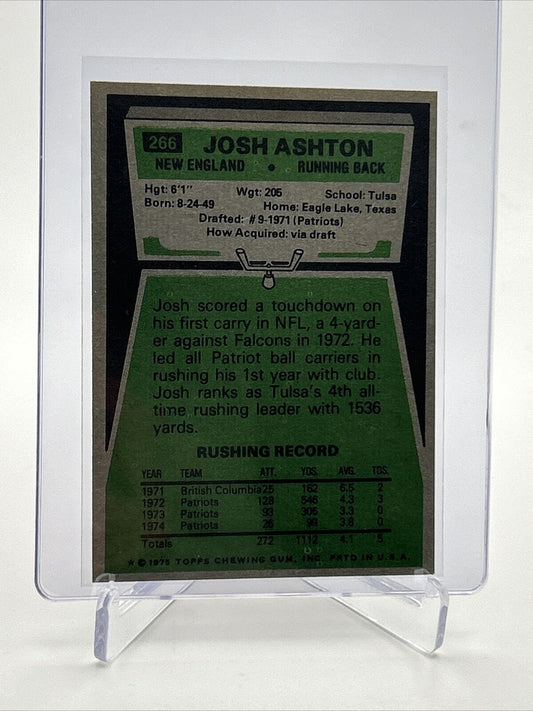 266 JOSH ASHTON
NEW ENGLAND • RUNNING BACK
Hgt: 6'1" Wgt: 205 School: Tulsa
Born: 8-24-49 Home: Eagle Lake, Texas
Drafted: # 9-1971 (Patriots)
How Acquired: via draft
Josh scored a touchdown on
his first carry in NFL, a 4-yard-
er against Falcons in 1972. He
led all Patriot ball carriers in
rushing his 1st year with club.
Josh ranks as Tulsa's 4th all-
time rushing leader with 1536
yards.
RUSHING RECORD
YEAR TEAM ATT. YDS. AVG. TDS.
1971 British Columbia 25 162 6.5 2
1972 Patriots 128 546 4.3 3
1973 Patriots 93 305 3.3 0
1974 Patriots 26 99 3.8 0
Totals 272 1112 4.1 5
★ © 1975 TOPPS CHEWING GUM, INC. PRTD IN U.S.A.